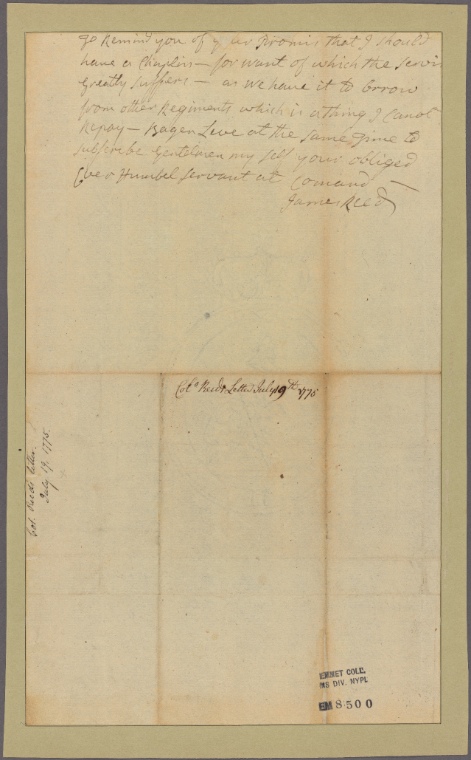 go Remind you of your Promis that I should
have a Chaplin — for want of which the Servis
Greatly Suffers — as we have it to borrow
from other Regiments which is a thing I Canot
Repay — Bagen Leve at the same time to
subscribe Gentelmen my self your obliged
Humbel Servant at Comand —
James Reed
Colo. Reeds Letter July 19th 1775
Col. Reeds letter
July 19. 1775
EMMET COLL.
MS DIV. NYPL
EM 8500